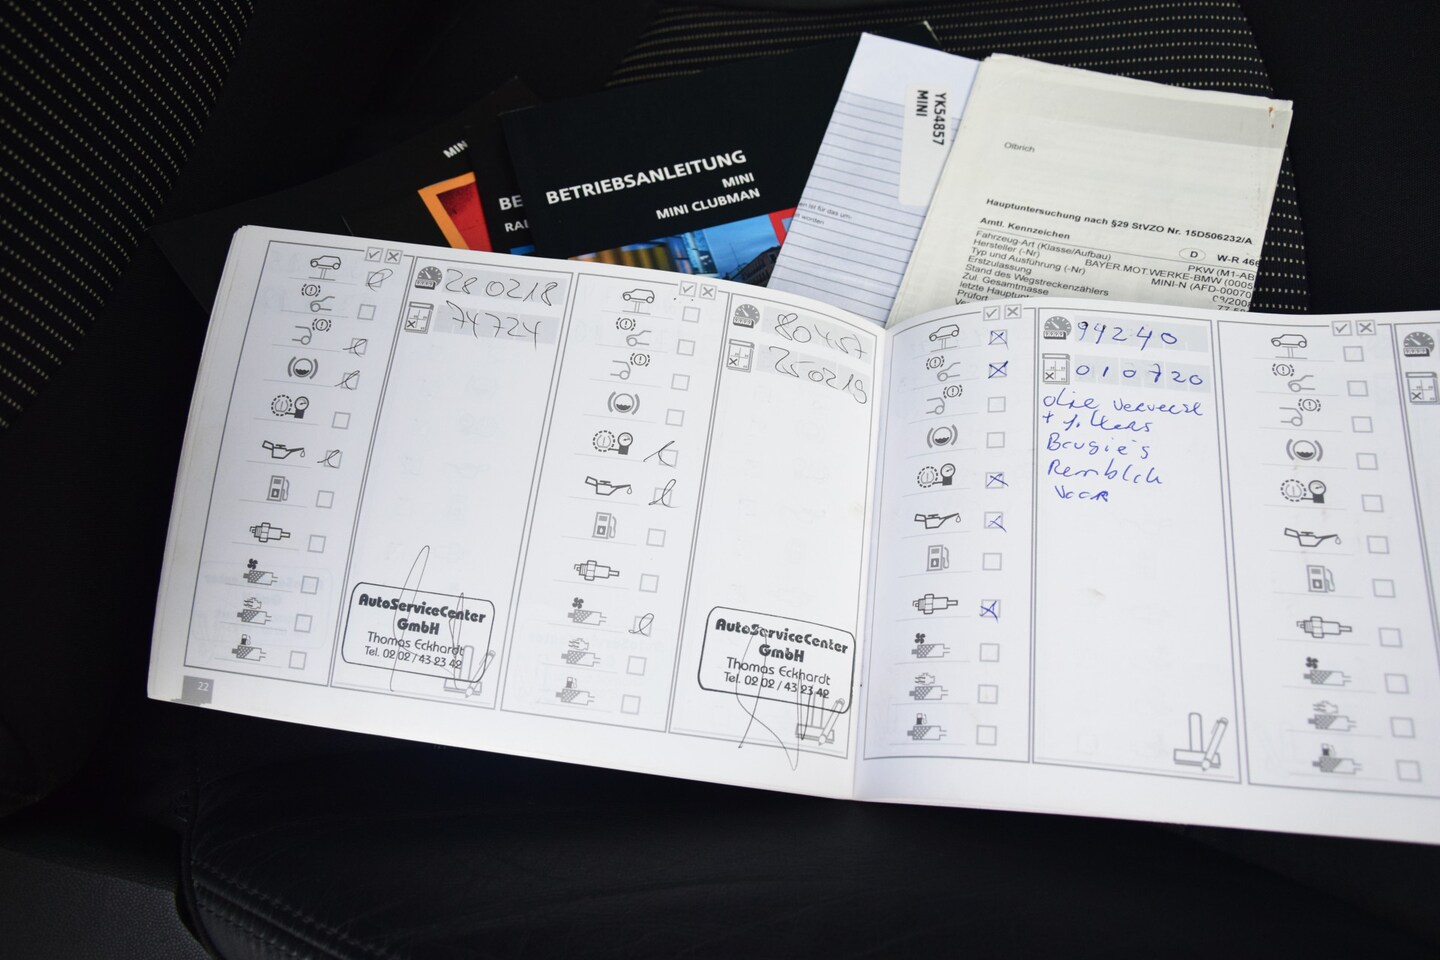 MIN
BE
RA
BETRIEBSANLEITUNG
MINI
MINI CLUBMAN
YK54857
MINI
en ist für das um-
t worden
Olbrich
Hauptuntersuchung nach §29 StVZO Nr. 15D506232/A
Amtl. Kennzeichen
D W-R 46
Fahrzeug-Art (Klasse/Aufbau) PKW (M1-AB
Hersteller (-Nr) BAYER.MOT.WERKE-BMW (0005
Typ und Ausführung (-Nr) MINI-N (AFD-00070
Erstzulassung
Stand des Wegstreckenzählers
Zul. Gesamtmasse
letzte Hauptun
Prüfort
280218
74724
AutoServiceCenter
GmbH
Thomas Eckhardt
Tel. 02 02 / 43 23 42
22
80457
250219
AutoServiceCenter
GmbH
Thomas Eckhardt
Tel. 02 02 / 43 23 42
94240
010720
olie ververst
+ filters
Bougie's
Remblok
voor